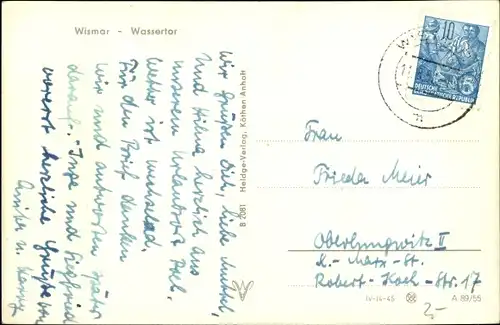 Wismar - Wassertor
Wir grüßen Dich, liebe Mutti,
und Hilma herzlich aus
unserem Urlaubsort Poel.
Wetter ist wechselnd.
Für den Brief danken
wir und antworten später
darauf. Inge und Siegfried
vorerst herzliche Grüße von
u. Hanny
B 2081 Heldge-Verlag, Köthen Anhalt
10
6
DEUTSCHE
Frau
Frieda Meier
Oberlungwitz II
K.-Marx-St.
Robert-Koch-Str. 17
IV-14-45 A 89/55
2,-